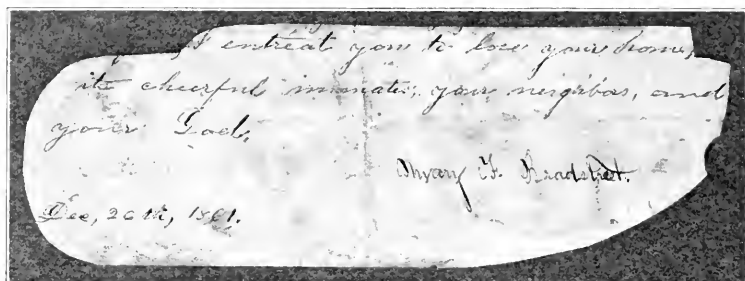 I entreat you to love your home,
its cheerful inmates, your neighbors, and
your God.
Mary F. Bradstreet.
Dec, 20th, 1861.